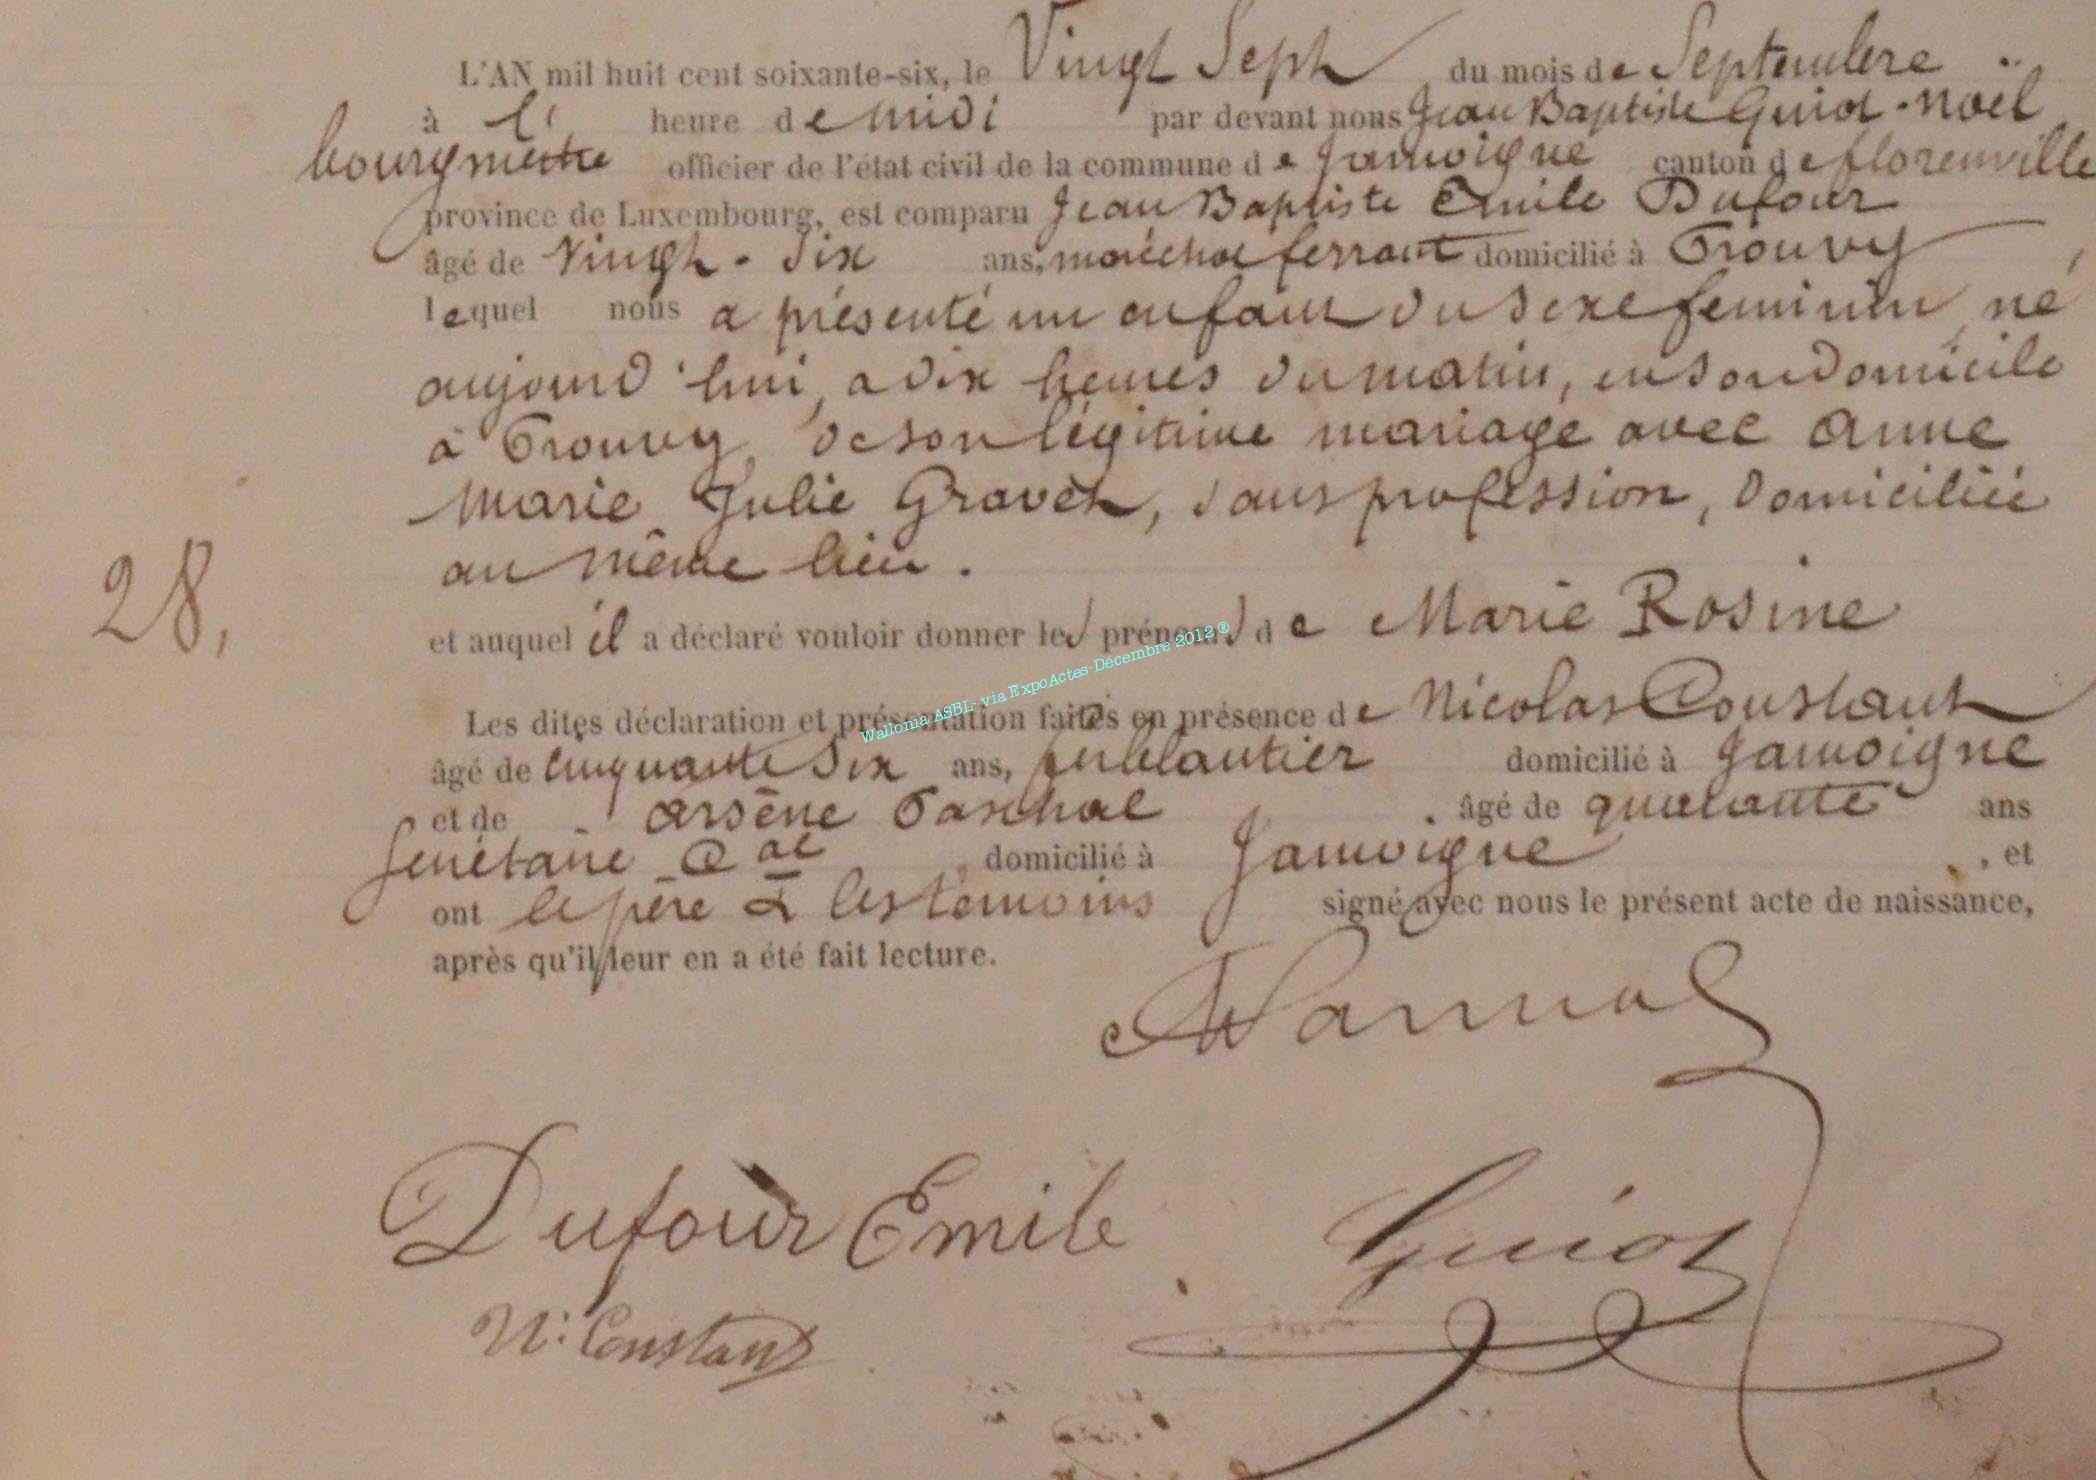 L'AN mil huit cent soixante-six, le Vingt Sept du mois de Septembre
à l' heure de midi par devant nous Jean Baptiste Guiot-Noël
bourgmestre officier de l'état civil de la commune de Jamoigne canton de florenville
province de Luxembourg, est comparu Jean Baptiste Emile Dufour
âgé de Vingt-Six ans, maréchal ferrant domicilié à Prouvy
lequel nous a présenté un enfant du sexe feminin, né
aujourd'hui, a dix heures du matin, en son domicile
à Prouvy, de son légitime mariage avec Anne
Marie Julie Gravet, sans profession, domiciliée
au même lieu.
28,
et auquel il a déclaré vouloir donner les prénoms de Marie Rosine
Wallonia ASBL- via ExpoActes-Décembre 2012 ®
Les dites déclaration et présentation faites en présence de Nicolas Constant
âgé de cinquante Six ans, ferblantier domicilié à Jamoigne
et de Arsène Paschal âgé de quarante ans
Secrétaire Cal domicilié à Jamoigne, et
ont le père & les témoins signé avec nous le présent acte de naissance,
après qu'il leur en a été fait lecture.
Dufour Emile Guiot
N: Constant